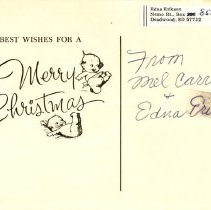 Edna Erikson
Nemo Rt., Box 85
Deadwood, SD 57732
BEST WISHES FOR A
Merry
Christmas
From
Mel Carr
&
Edna